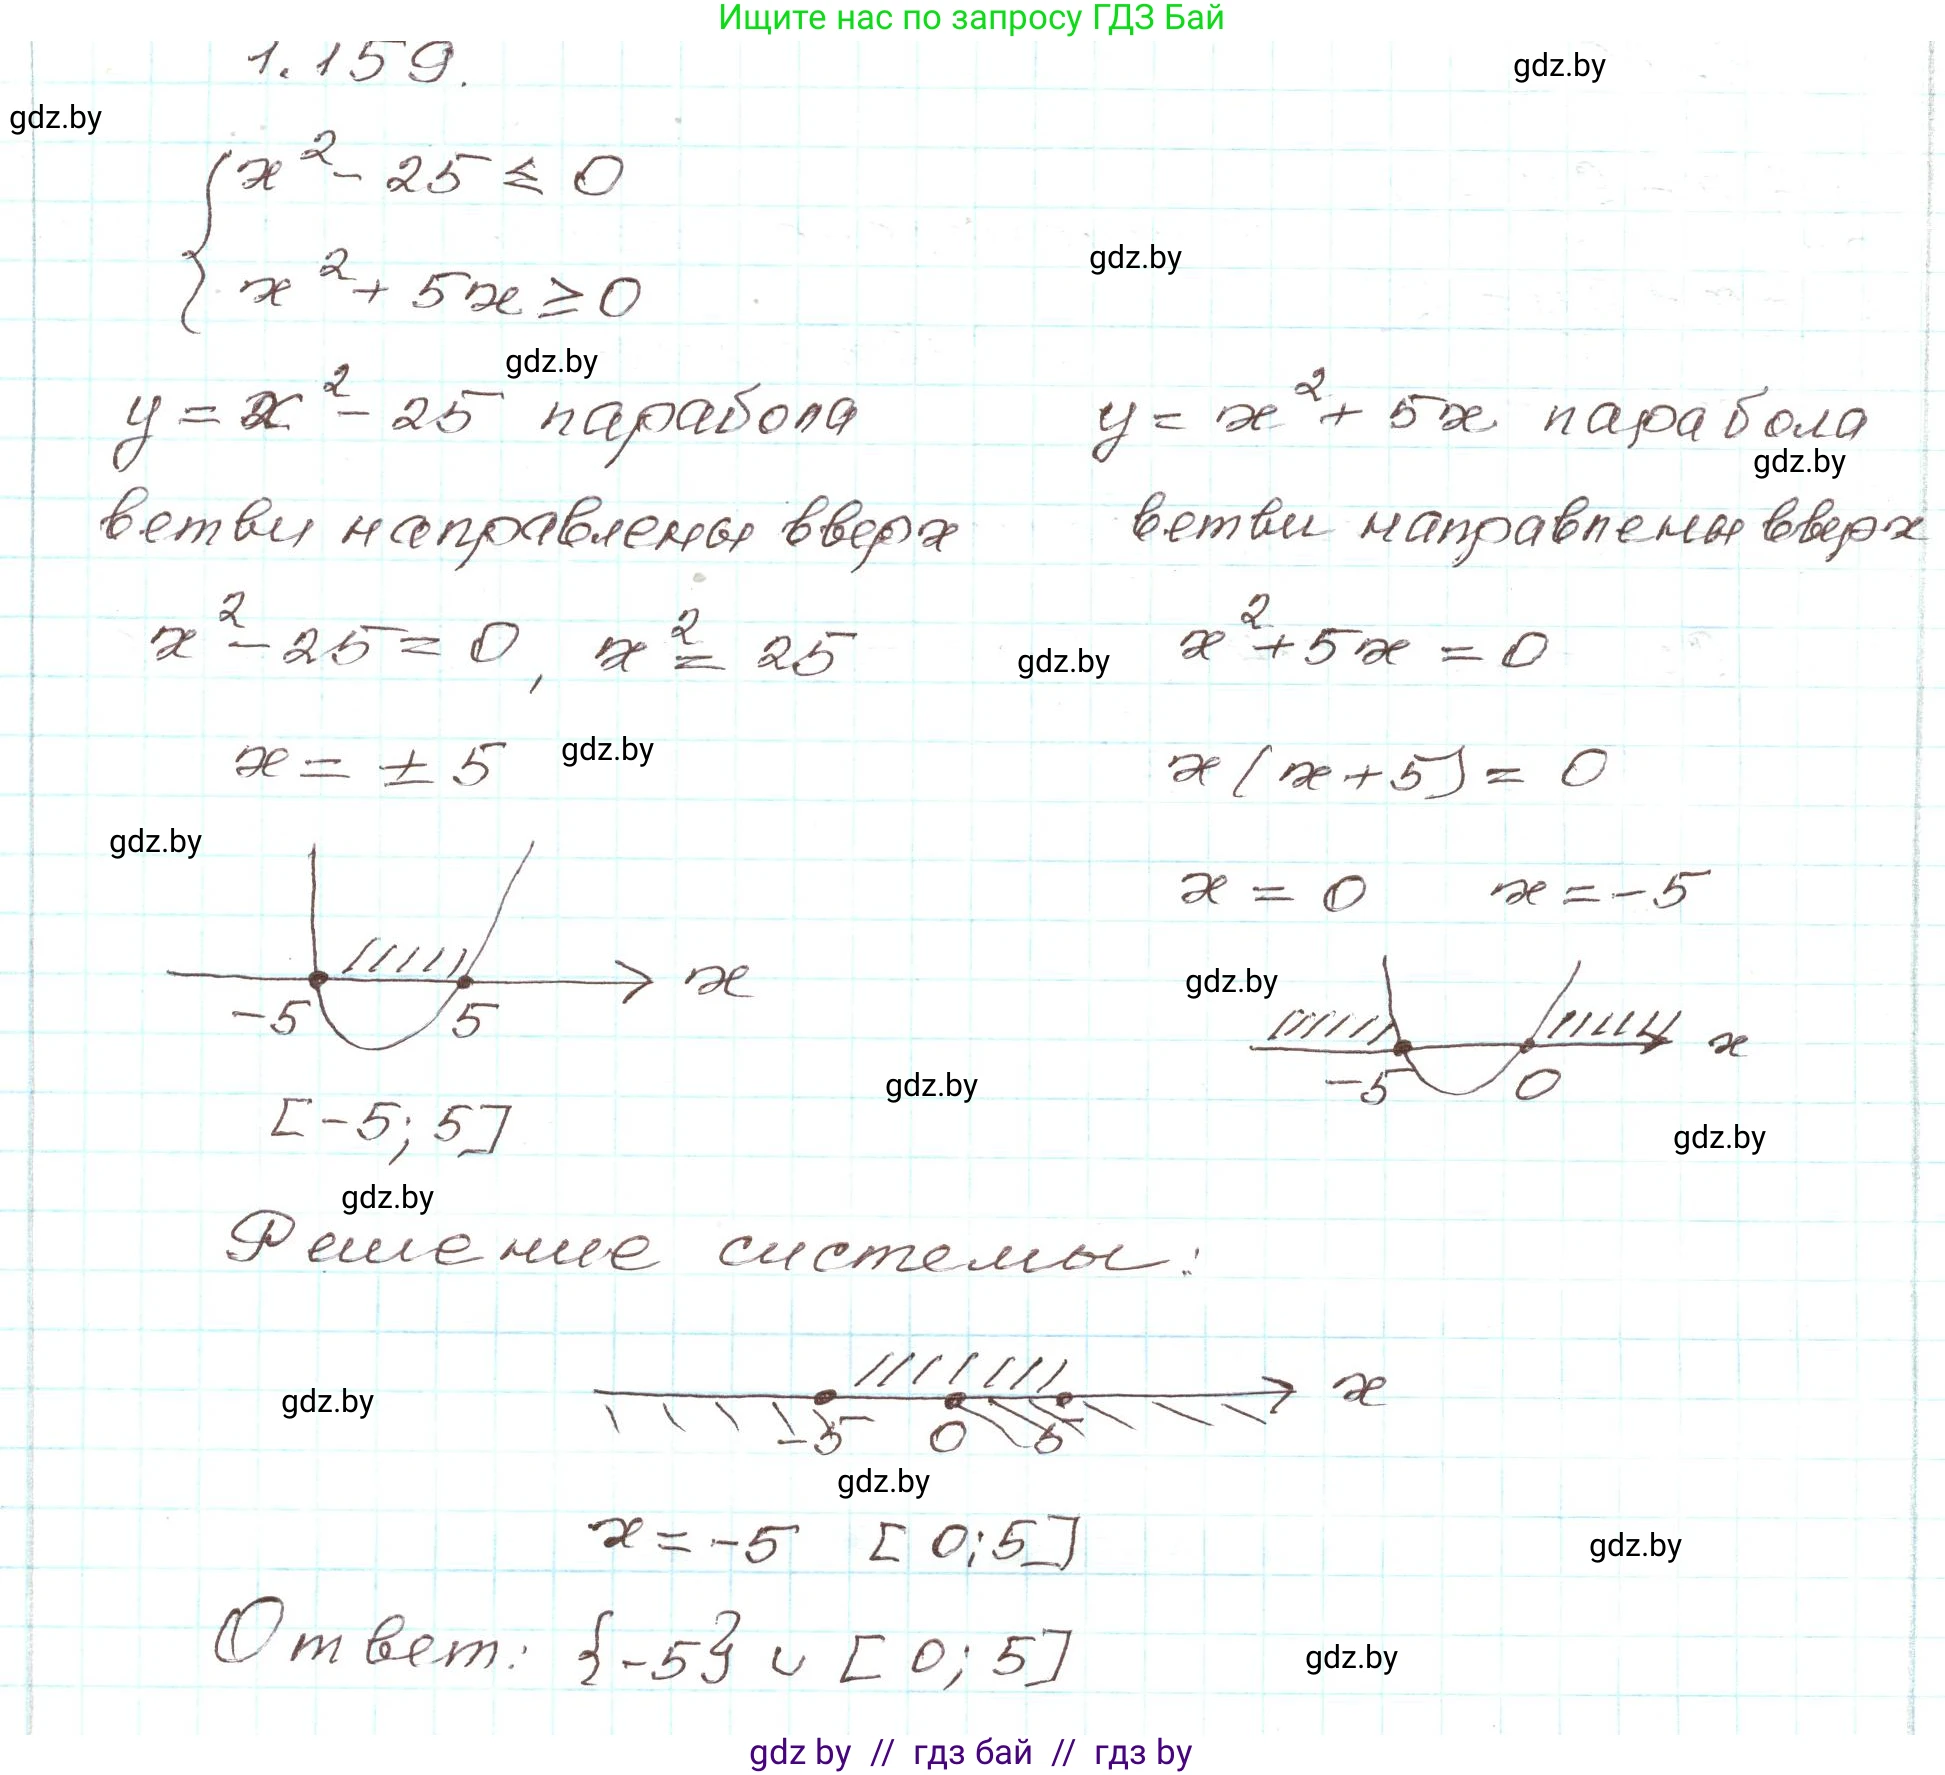 Ищите нас по запросу ГДЗ Бай
1.159.
gdz.by
gdz.by
x² - 25 ≤ 0
x² + 5x ≥ 0
gdz.by
gdz.by
y = x² - 25 парабола
y = x² + 5x парабола
gdz.by
ветви направлены вверх
ветви направлены вверх
x² - 25 = 0, x² = 25
gdz.by
x² + 5x = 0
x = ± 5
gdz.by
x(x+5) = 0
gdz.by
x = 0 x = -5
-5 5 x
gdz.by
-5 0 x
[-5; 5]
gdz.by
gdz.by
gdz.by
Решение системы:
gdz.by
-5 0 5 x
gdz.by
x = -5 [0; 5]
gdz.by
Ответ: {-5} ∪ [0; 5]
gdz.by
gdz by // гдз бай // гдз by